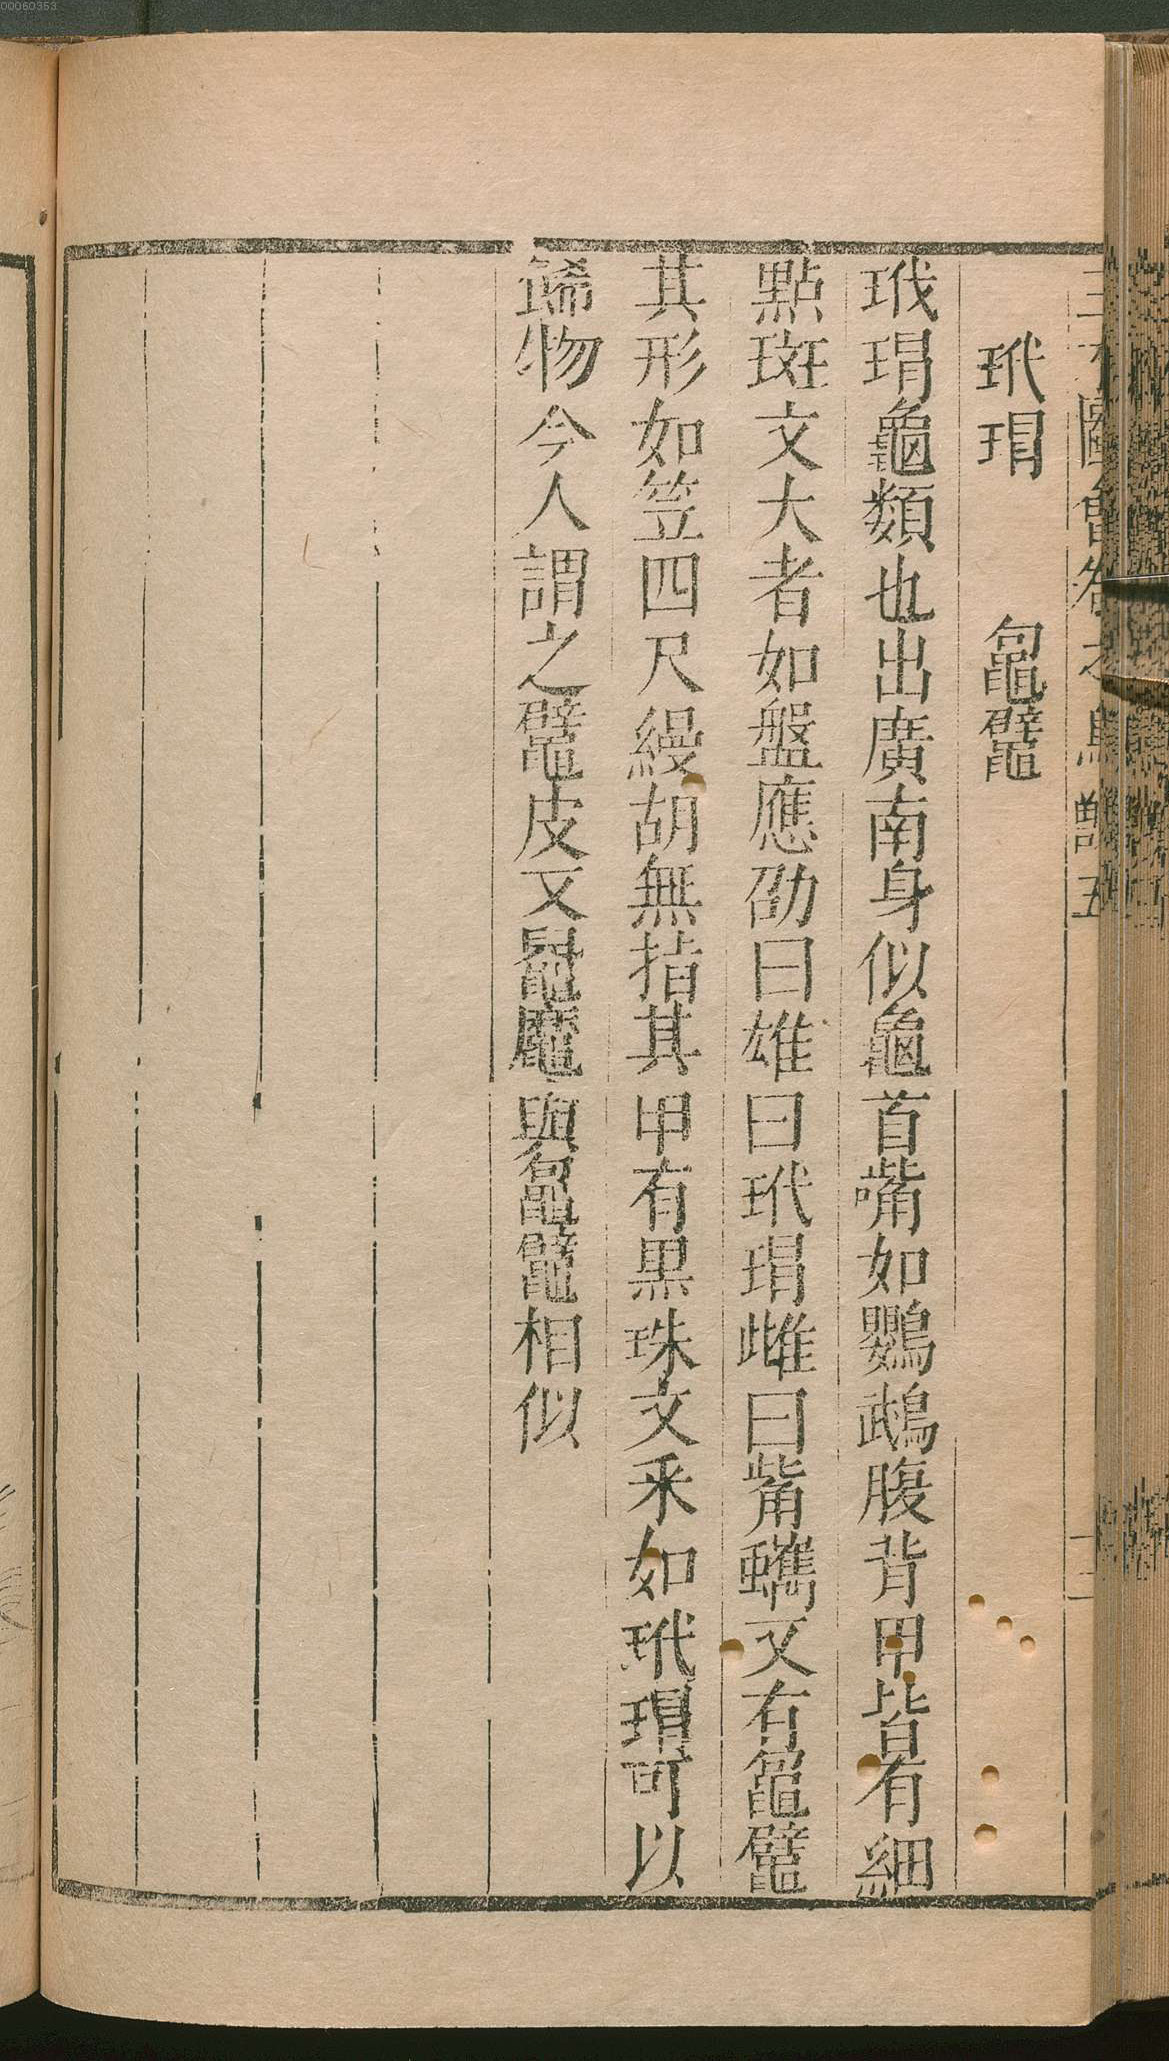 00060353
三才圖會卷之鳥獸五
玳瑁　　𪓟鼊
玳瑁龜類也出廣南身似龜首嘴如鸚鵡腹背甲皆有細
點斑文大者如盤應劭曰雄曰玳瑁雌曰觜蠵又有𪓟鼊
其形如笠四尺縵胡無指其甲有黒珠文采如玳瑁可以
物今人謂之鼊皮又鼊相似